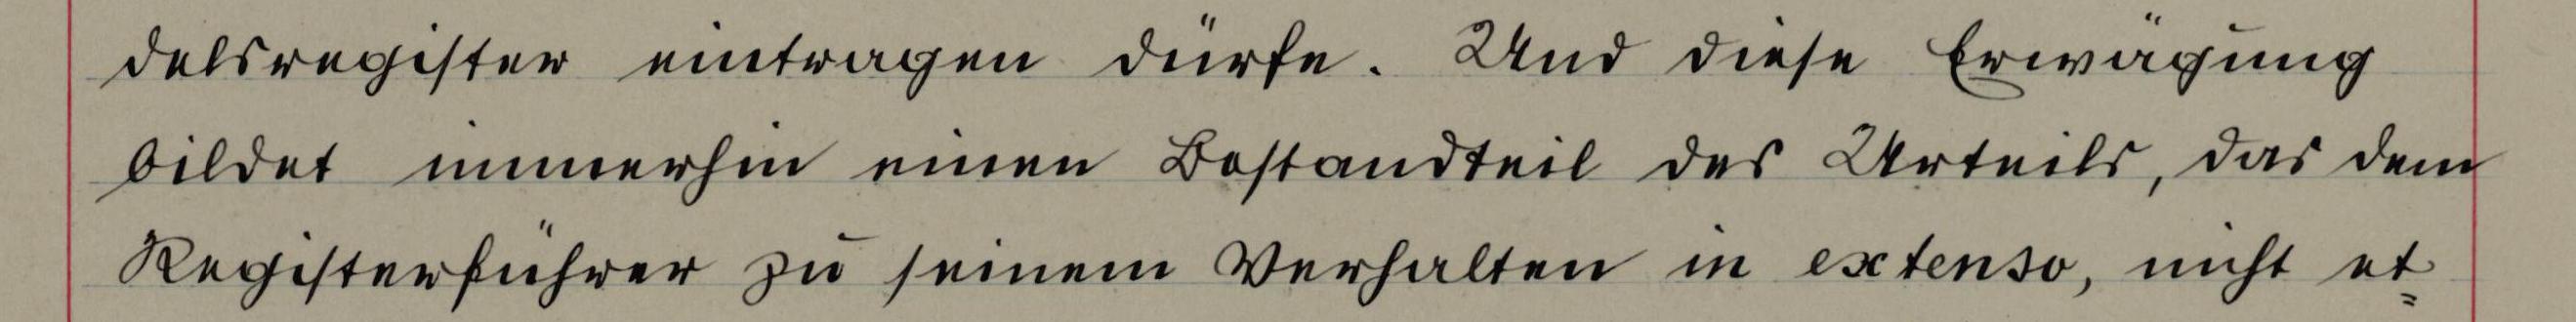 delsregister eintragen dürfe. Und diese Erwägung
bildet immerhin einen Bestandteil des Urteils, das dem
Registerführer zu seinem Verhalten in extenso, nicht et=